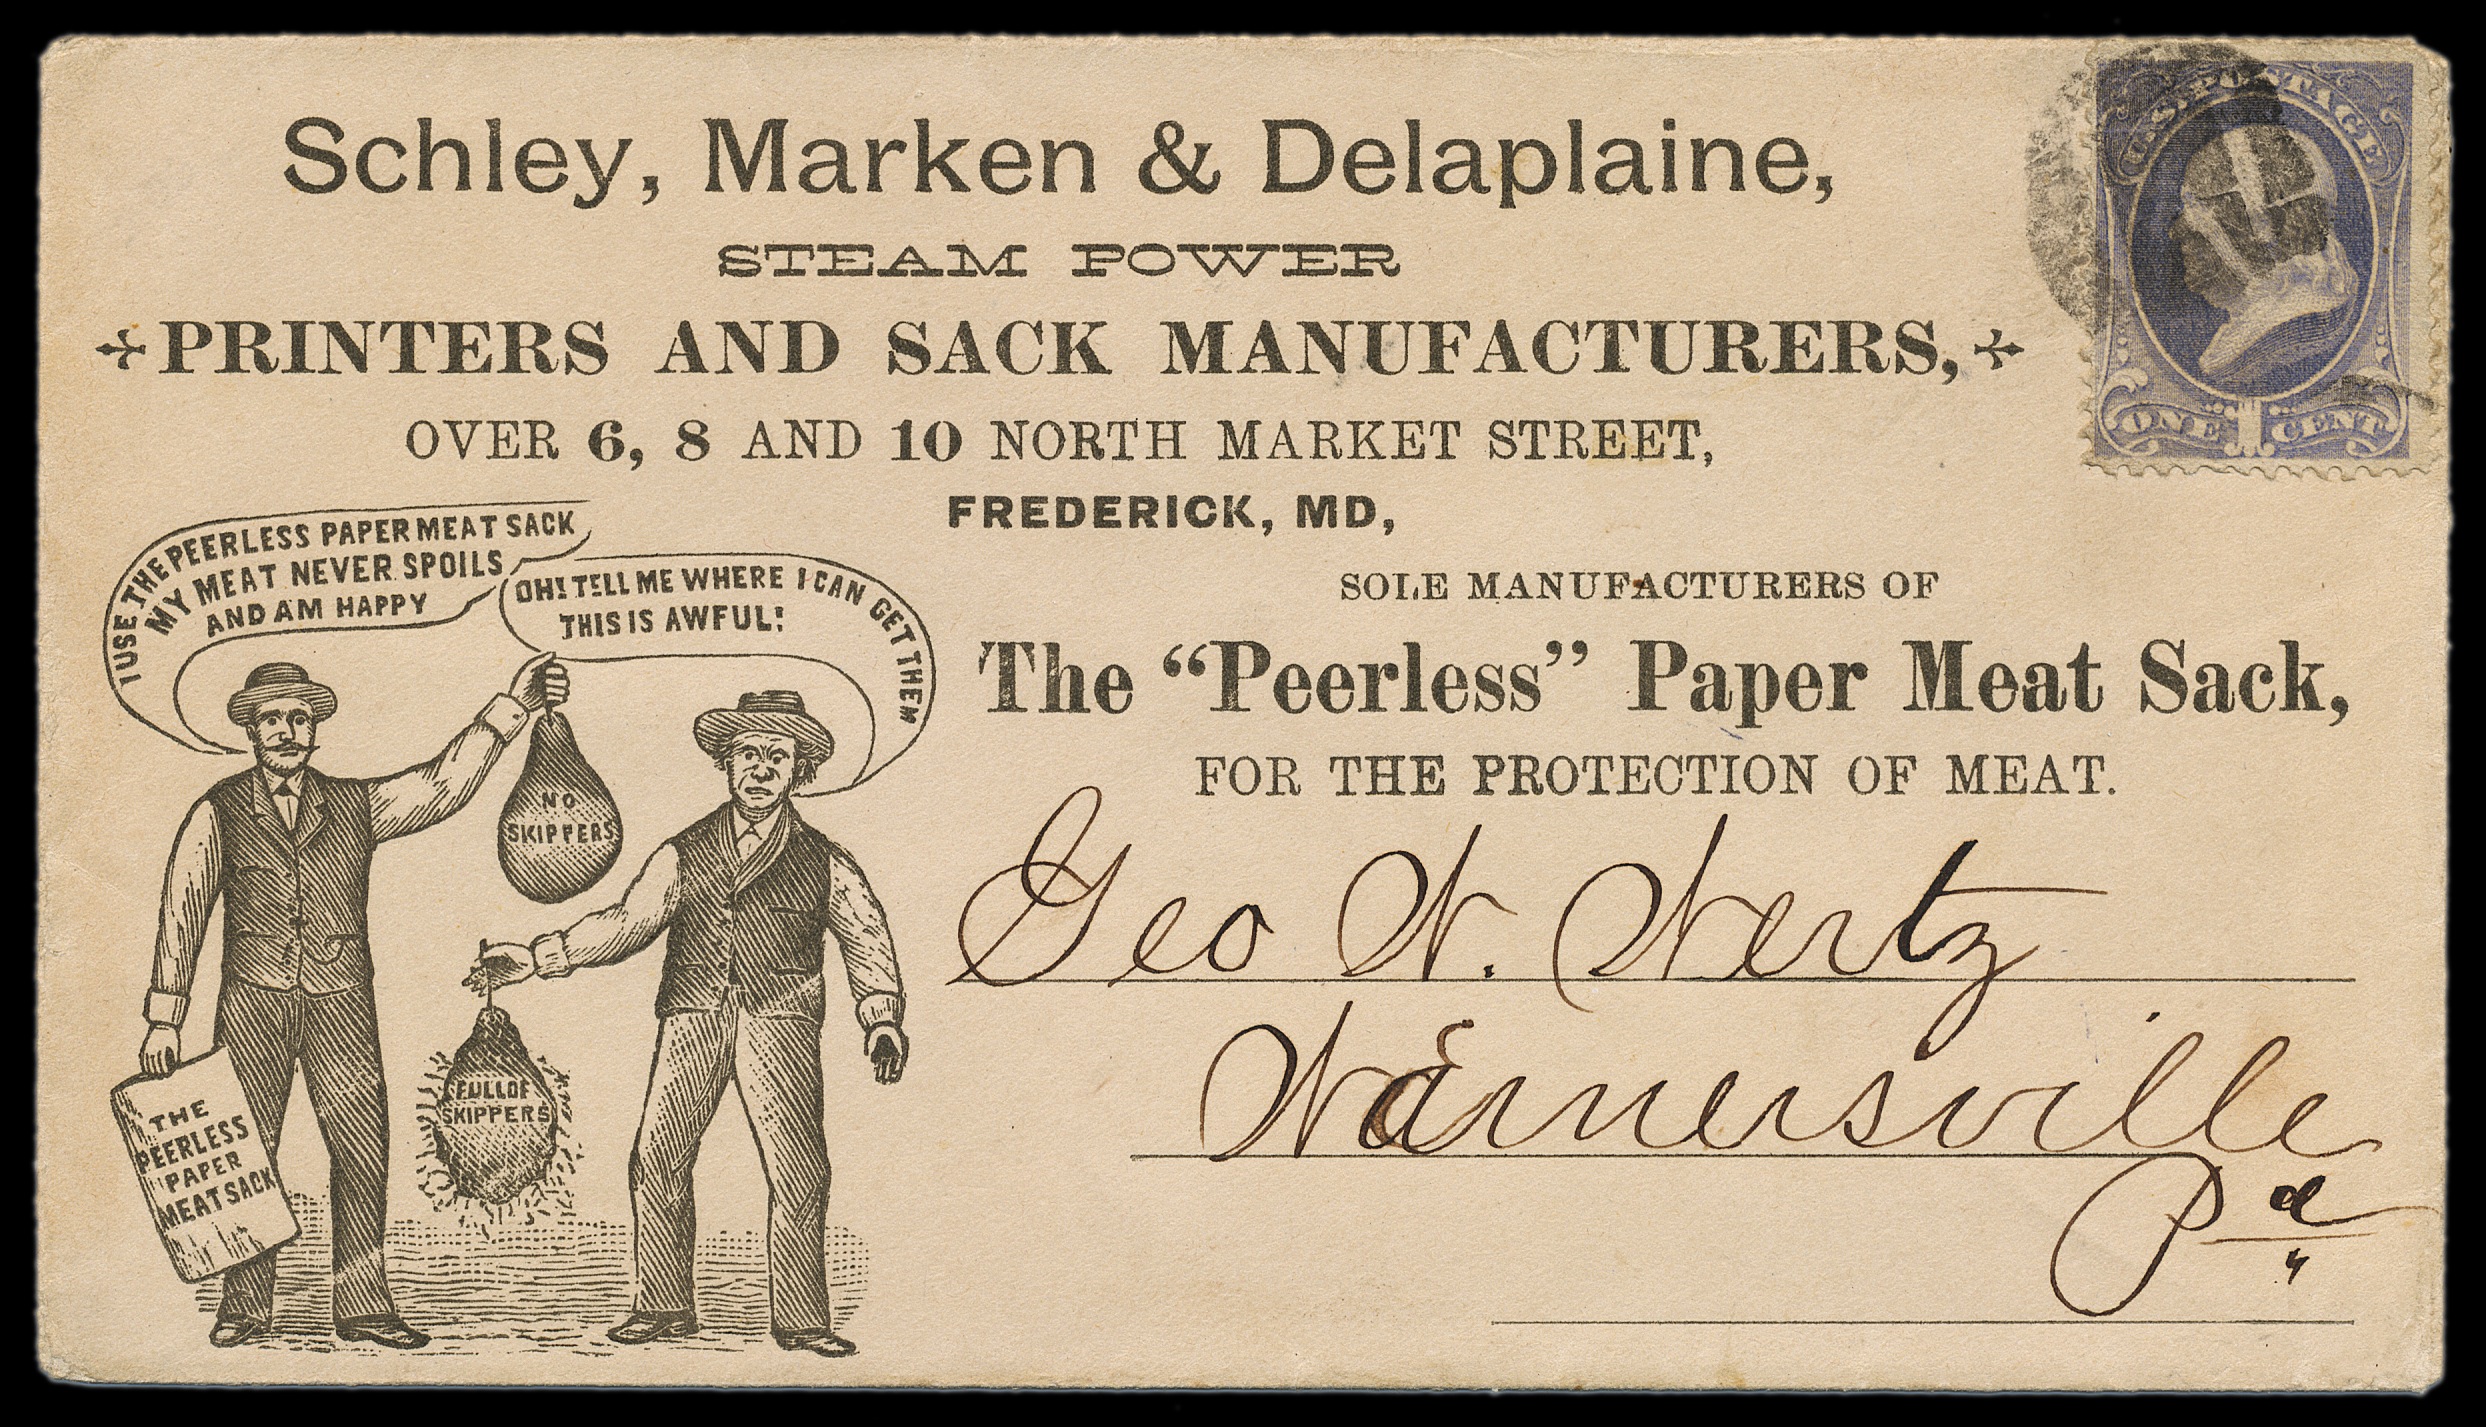 Schley, Marken & Delaplaine,
STEAM POWER
PRINTERS AND SACK MANUFACTURERS,
OVER 6, 8 AND 10 NORTH MARKET STREET,
FREDERICK, MD,
SOLE MANUFACTURERS OF
The “Peerless” Paper Meat Sack,
FOR THE PROTECTION OF MEAT.
I USE THE PEERLESS PAPER MEAT SACK
MY MEAT NEVER SPOILS
AND AM HAPPY
OH! TELL ME WHERE I CAN GET THEM
THIS IS AWFUL!
NO
SKIPPERS
FULL OF
SKIPPERS
THE
PEERLESS
PAPER
MEAT SACK
U.S. POSTAGE
ONE 1 CENT
Geo W. Wertz
Wernersville
Pa